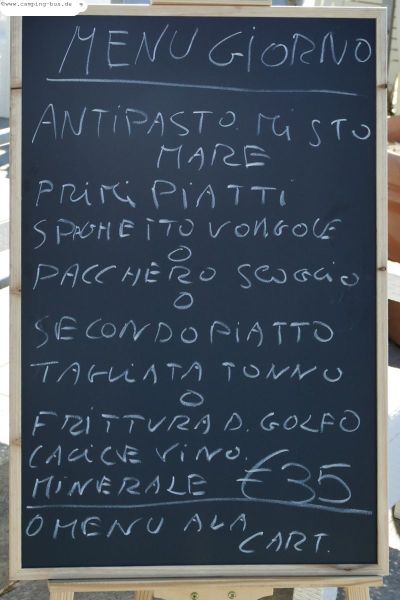 ©www.camping-bus.de
MENU GIORNO
ANTIPASTO. MISTO
MARE
PRIMI PIATTI
SPAGHETTO VONGOLE
O
PACCHERO SCOGLIO
O
SECONDO PIATTO
TAGLIATA TONNO
O
FRITTURA D. GOLFO
CALICE VINO.
MINERALE €35
O MENU ALA
CART.